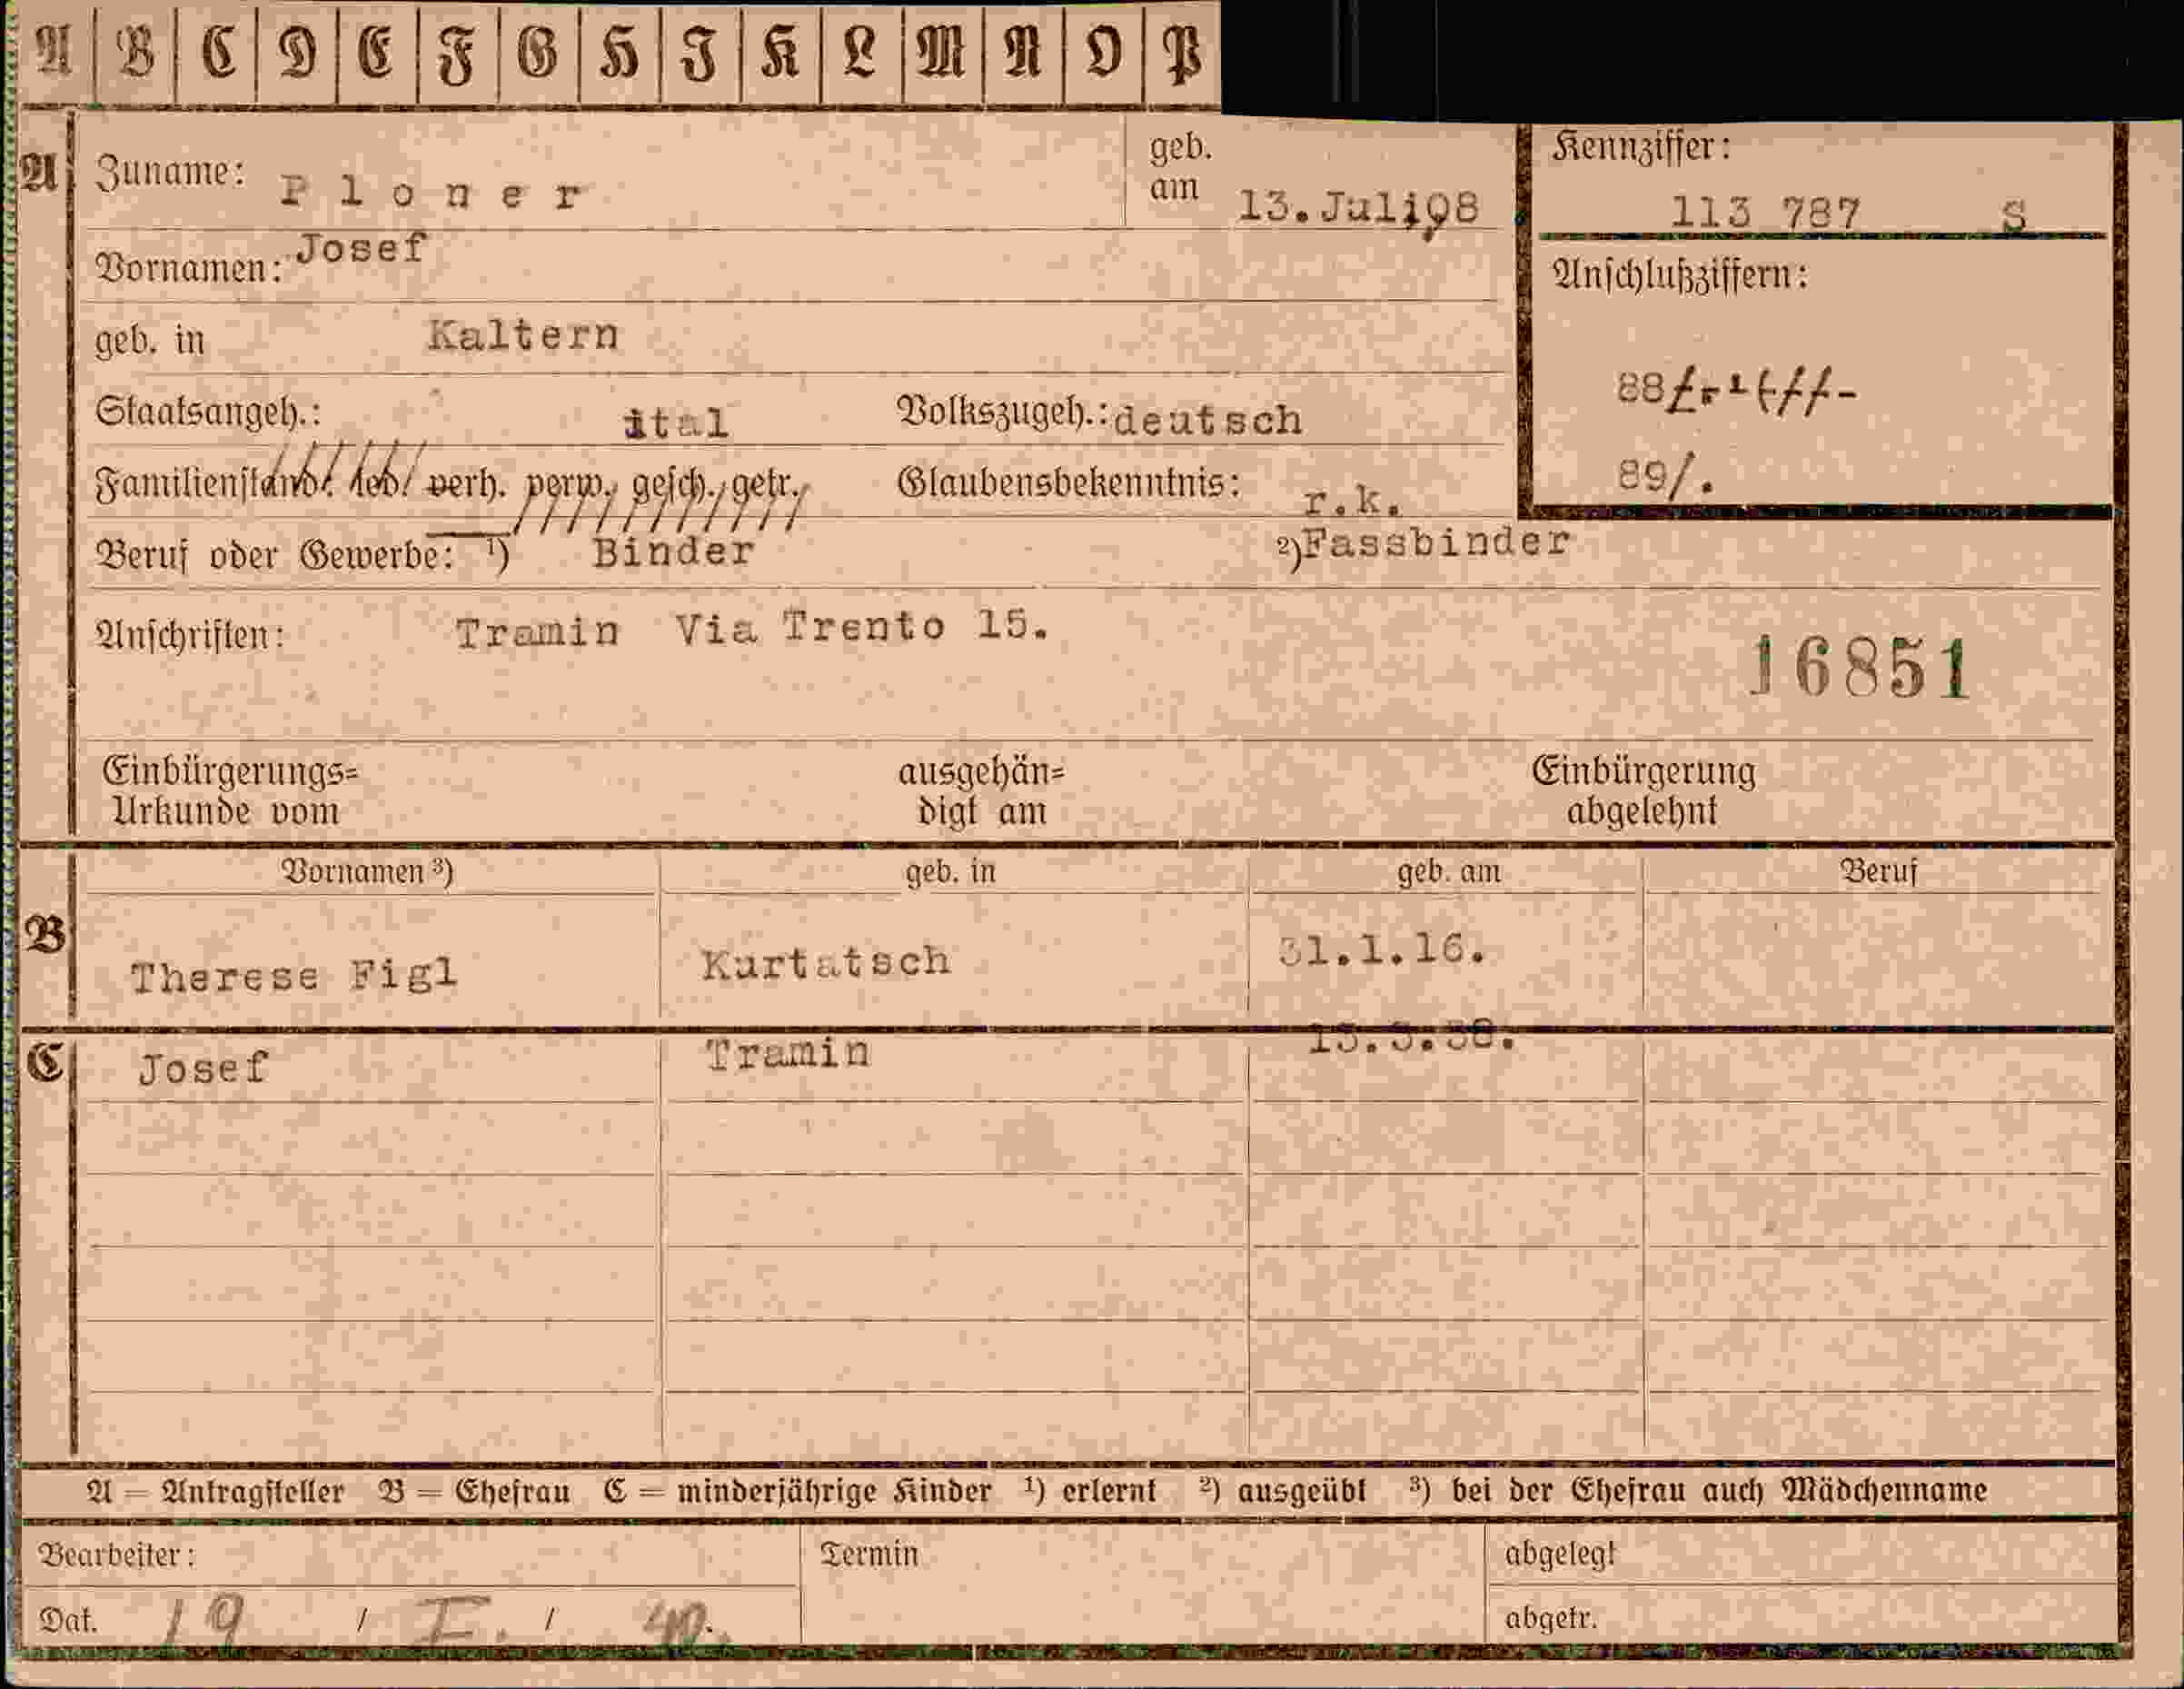 A B C D E F G H I K L M N O P
A
Zuname: Ploner
geb. am 13.Juli 08
Kennziffer:
113 787 S
Vornamen: Josef
Anschlußziffern:
geb. in Kaltern
88
Staatsangeh.: ital Volkszugeh.: deutsch
89/.
Familienstand: led. verh. verw. gesch. getr. Glaubensbekenntnis: r.k.
Beruf oder Gewerbe: ¹) Binder ²)Fassbinder
Anschriften: Tramin Via Trento 15.
16851
Einbürgerungs= Urkunde vom
ausgehän= digt am
Einbürgerung abgelehnt
Vornamen ³) geb. in geb. am Beruf
B Therese Figl Kurtatsch 31.1.16.
C Josef Tramin
A = Antragsteller B = Ehefrau C = minderjährige Kinder ¹) erlernt ²) ausgeübt ³) bei der Ehefrau auch Mädchenname
Bearbeiter: Termin abgelegt
Dat. 19 / I. / 40. abgetr.